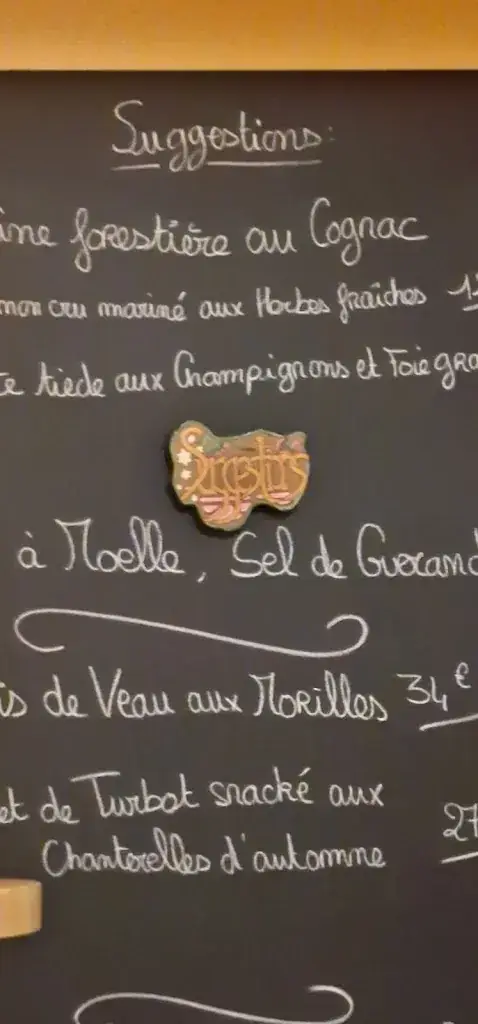 Suggestions:
ine forestière au Cognac
mon cru mariné aux Herbes fraîches
te tiede aux Champignons et Foie gra
à Moelle, Sel de Guerand
is de Veau aux Morilles 34€
et de Turbot snacké aux 27
Chanterelles d'automne